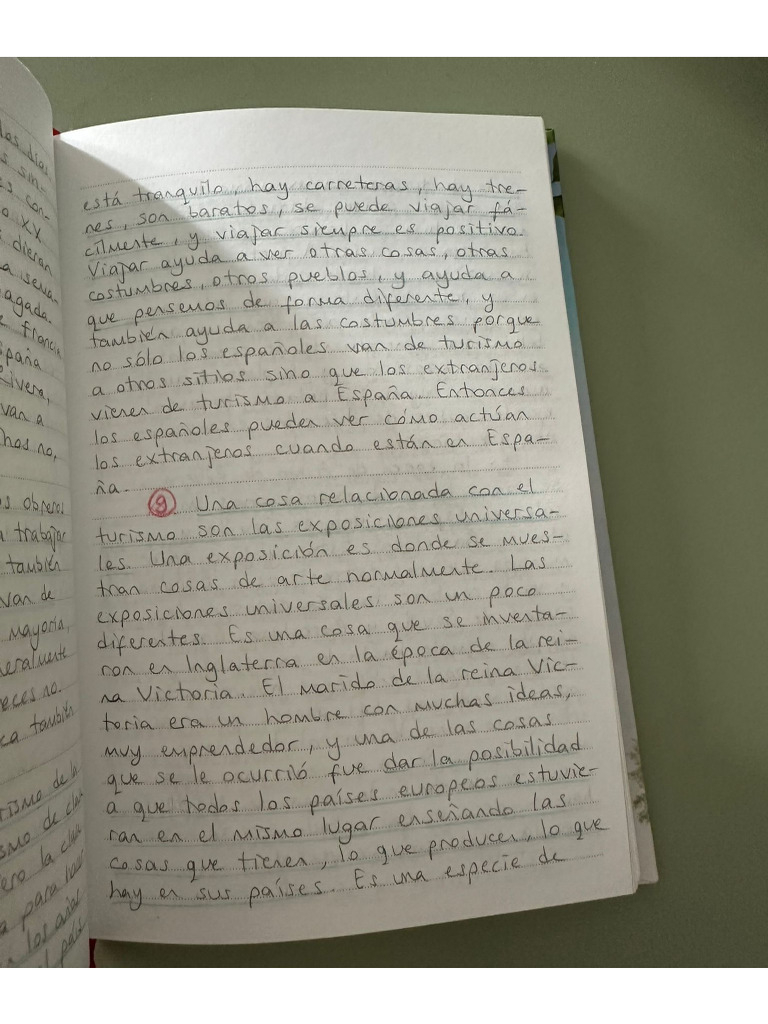 está tranquilo, hay carreteras, hay tre-
nes, son baratos, se puede viajar fá-
cilmente, y viajar siempre es positivo.
Viajar ayuda a ver otras cosas, otras
costumbres, otros pueblos, y ayuda a
que pensemos de forma diferente, y
también ayuda a las costumbres porque
no sólo los españoles van de turismo
a otros sitios sino que los extranjeros
vienen de turismo a España. Entonces
los españoles pueden ver cómo actúan
los extranjeros cuando están en Espa-
ña.
9 Una cosa relacionada con el
turismo son las exposiciones universa-
les. Una exposición es donde se mues-
tran cosas de arte normalmente. Las
exposiciones universales son un poco
diferentes. Es una cosa que se inventa-
ron en Inglaterra en la época de la rei-
na Victoria. El marido de la reina Vic-
toria era un hombre con muchas ideas,
muy emprendedor, y una de las cosas
que se le ocurrió fue dar la posibilidad
a que todos los países europeos estuvie-
ran en el mismo lugar enseñando las
cosas que tienen, lo que producen, lo que
hay en sus países. Es una especie de
los días
XX
dieran
agada.
Francia
Rivera,
van a
no,
obreros
trabajar
también
van de
mayoría,
neralmente
no.
también
de la
la clase
para
los
el país